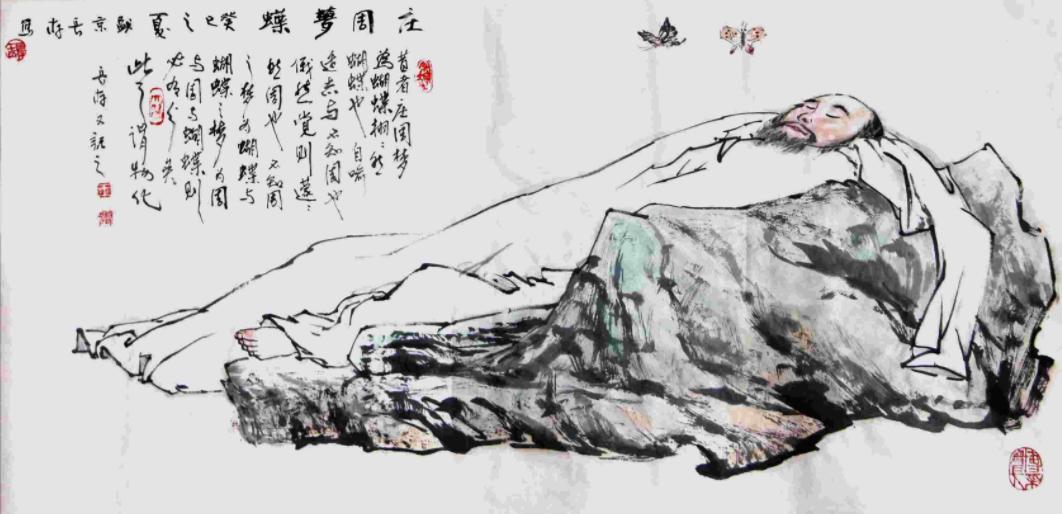 庄周夢蝶 癸巳之夏 京 写
昔者庄周梦
為蝴蝶栩々然
蝴蝶也自喻
适志与不知周也
俄然觉则蘧々
然周也不知周
之梦为蝴蝶与
蝴蝶之梦为周
与周与蝴蝶则
必有分矣
此之謂物化
又記之